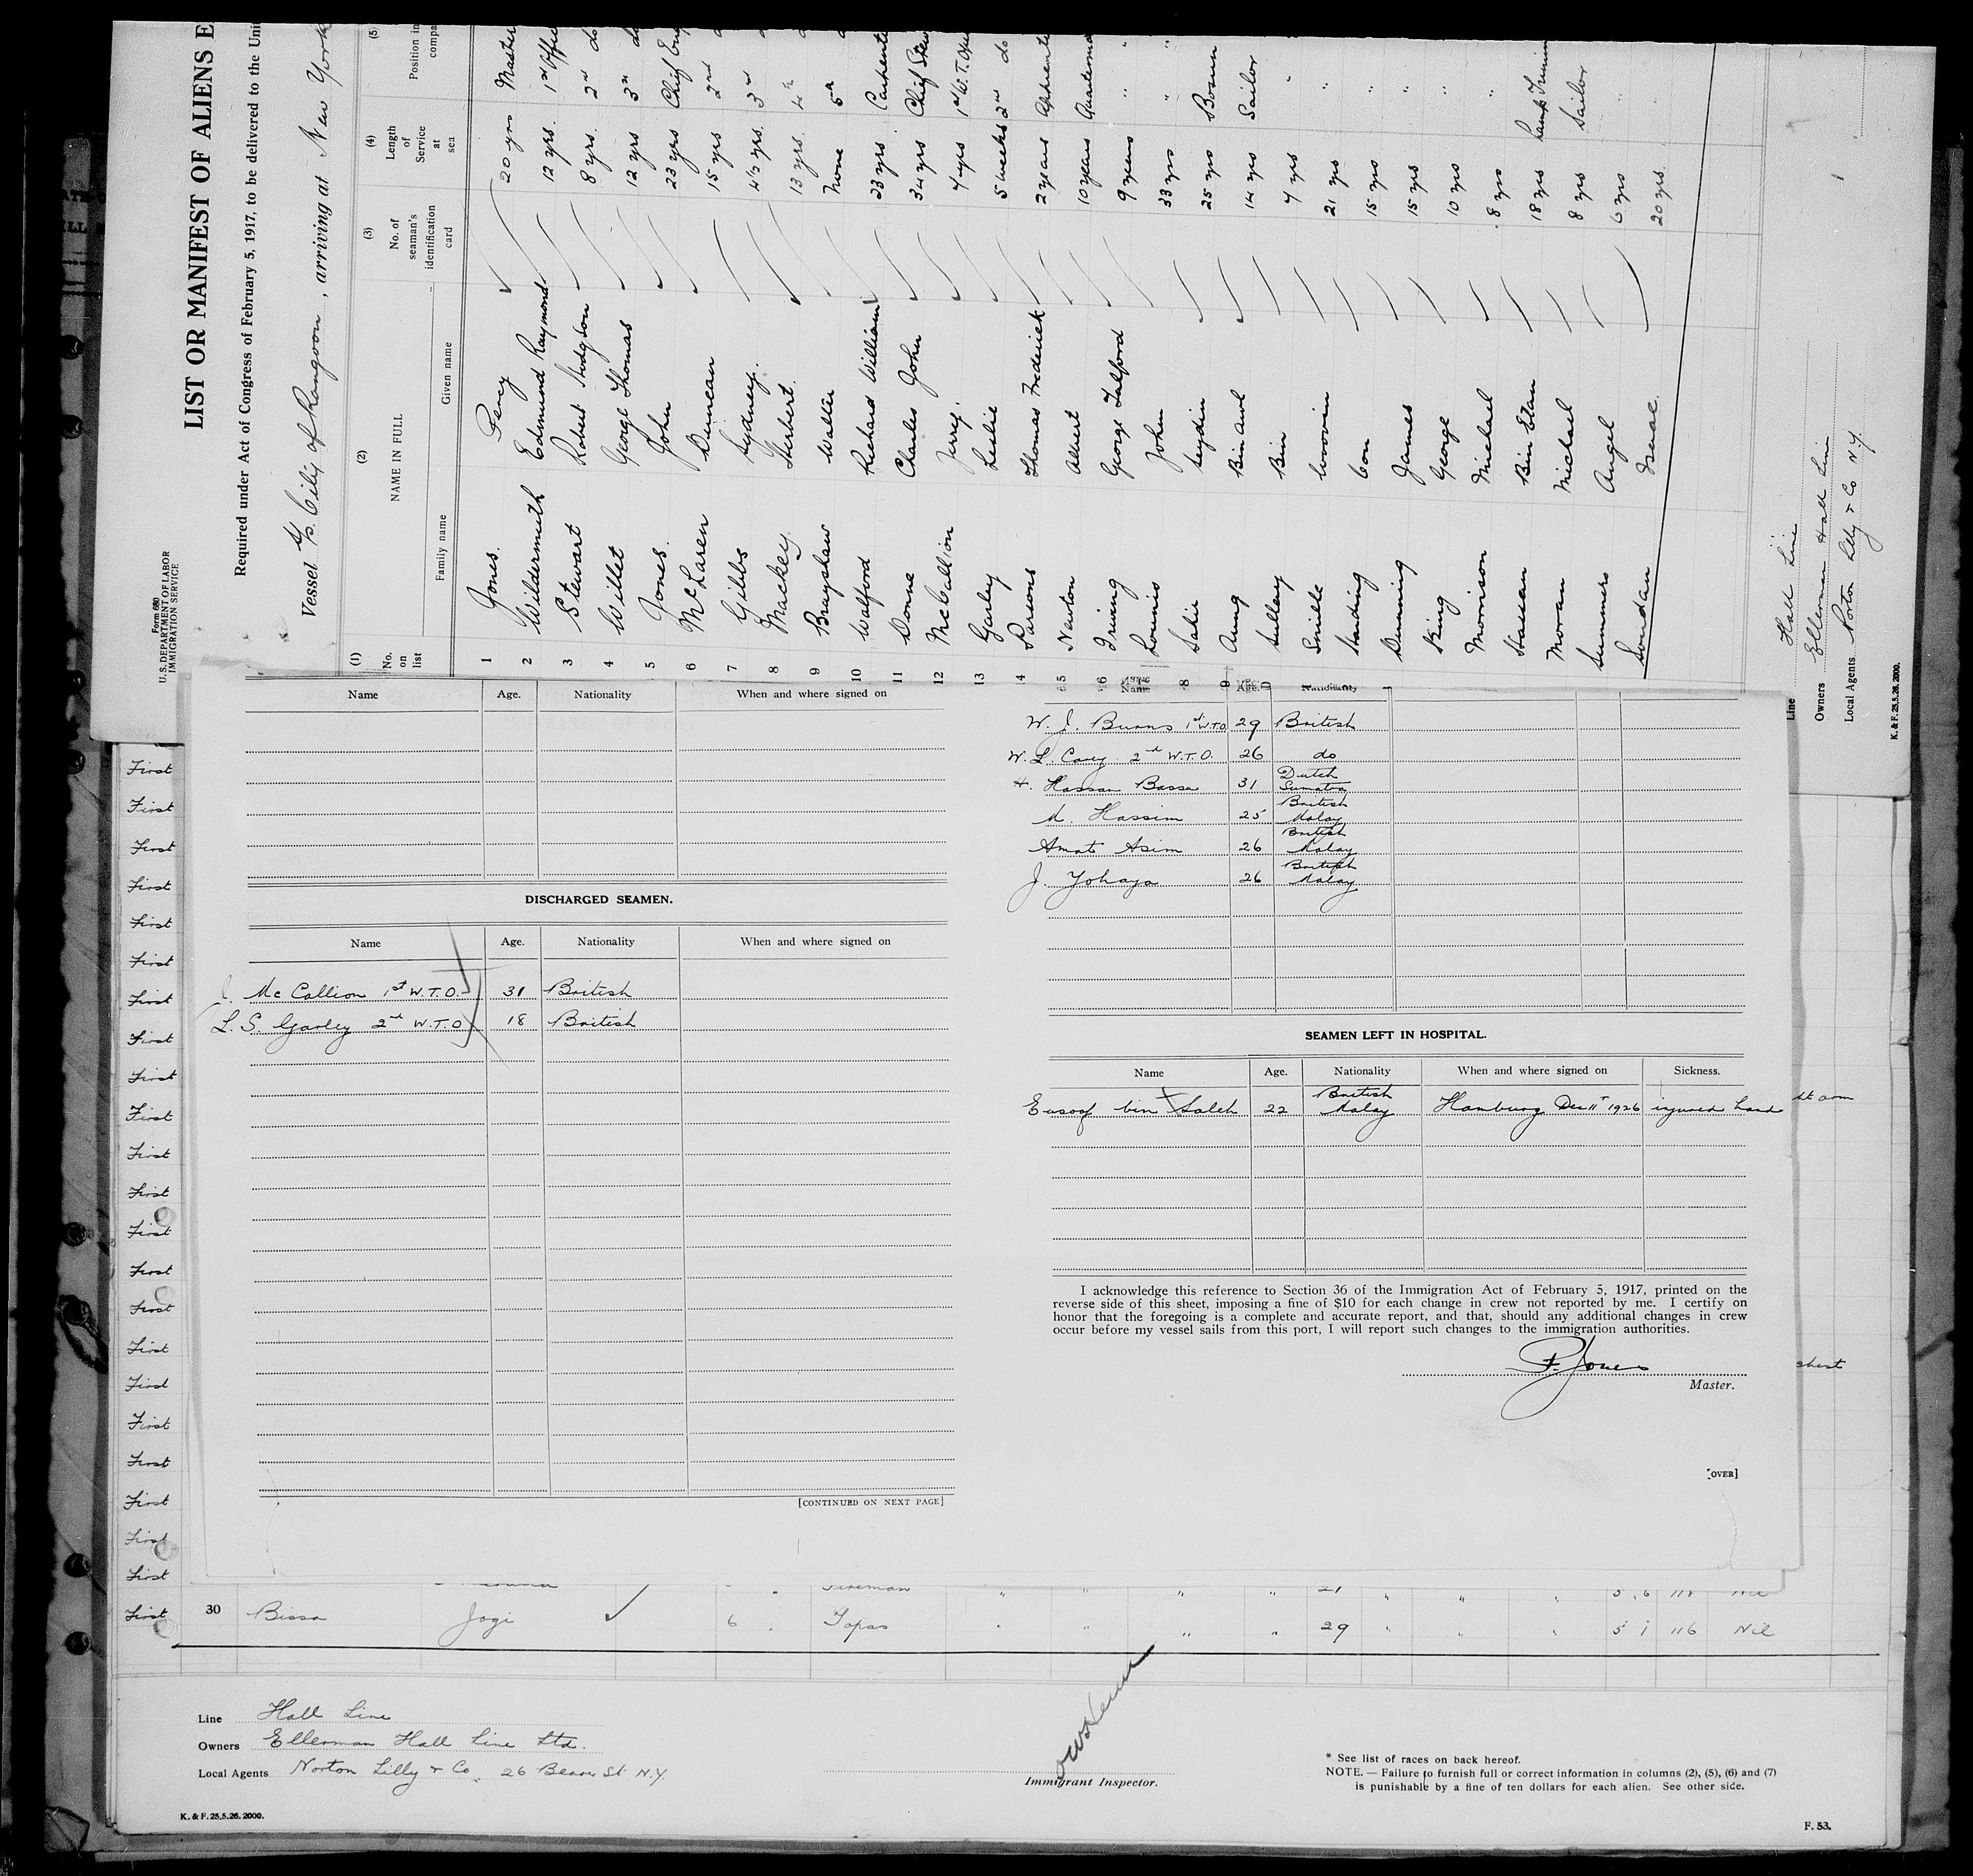 Form 680
U. S. DEPARTMENT OF LABOR
IMMIGRATION SERVICE
LIST OR MANIFEST OF ALIENS E
Required under Act of Congress of February 5, 1917, to be delivered to the Uni
Vessel S/S. City of Rangoon, arriving at New York
(1) (2) (3) (4) (5)
No. on list NAME IN FULL No. of seaman's identification card Length of Service at sea Position in compa
Family name Given name
1 Jones. Percy 20 yrs Master
2 Wildermuth Edmund Raymond 12 yrs. 1st Offic
3 Stewart Robert Hodgson 8 yrs. 2nd do
4 Willet George Thomas 12 yrs 3rd do
5 Jones. John 23 yrs Chief Eng
6 McLaren Duncan 15 yrs 2nd
7 Gibbs Sydney. 4½ yrs. 3rd
8 Mackey. Herbert. 13 yrs. 4th
9 Brayshaw Walter None 5th
10 Walford Richard William 23 yrs. Carpente
11 Donne Charles John 34 yrs Chief Stew
12 McCallion Jerry. 4 yrs 1st W.T. Ope
13 Garley Leslie 5 weeks 2nd do
14 Parsons Thomas Frederick 2 years Apprentic
15 Newton Albert 10 years Quarterma
16 Irving George Talford 9 years "
Loomis John 33 yrs "
8 Salie Seydin 25 yrs Bosun
9 Aung Bin Awl 14 yrs Sailor
0 Sullery Bin 4 yrs "
Smille 21 yrs "
Harding Con 15 yrs "
Dunning James 15 yrs "
King George 10 yrs "
Morrison Michael 8 yrs "
Hassan Bin Etan 18 yrs Lamp Trimm
Moran Michael 8 yrs Sailor
Summers Angel 6 yrs "
Soudan Isaac. 20 yrs. "
Line Hall Line
Owners Ellerman Hall Line
Local Agents Norton Lilly & Co N.Y.
K. & F. 25.5.26. 2000.
Name Age. Nationality When and where signed on
DISCHARGED SEAMEN.
Name Age. Nationality When and where signed on
J. McCallion 1st W.T.O. 31 British
L. S. Garley 2nd W.T.O 18 British
[CONTINUED ON NEXT PAGE]
Name Age. Nationality
W. J. Burns 1st W.T.O. 29 British
W. L. Carey 2nd W.T.O. 26 do
H. Hassan Bassa 31 Dutch Sumatra
M. Hassim 25 British Malay
Amat Asim 26 British Malay
J. Yohaya 26 British Malay
SEAMEN LEFT IN HOSPITAL.
Name Age. Nationality When and where signed on Sickness.
Eusoof bin Saleh 22 British Malay Hamburg Dec 11th 1926 injured hand
I acknowledge this reference to Section 36 of the Immigration Act of February 5, 1917, printed on the
reverse side of this sheet, imposing a fine of $10 for each change in crew not reported by me. I certify on
honor that the foregoing is a complete and accurate report, and that, should any additional changes in crew
occur before my vessel sails from this port, I will report such changes to the immigration authorities.
P. Jones
Master.
[OVER]
First
First
First
First
First
First
First
First
First
First
First
First
First
First
First
First
First
First
First
First
First
First
lt arm
chest
Fireman " " " " 21 " " " 5 6 118 Nil
First 30 Bissa Jogi 6 " Topas " " " " 29 " " " 5 1 116 Nil
Line Hall Line
Owners Ellerman Hall Line Ltd.
Local Agents Norton Lilly & Co. 26 Beaver St N.Y.
Immigrant Inspector.
* See list of races on back hereof.
NOTE. — Failure to furnish full or correct information in columns (2), (5), (6) and (7)
is punishable by a fine of ten dollars for each alien. See other side.
K. & F. 25.5.26. 2000.
F. 53.